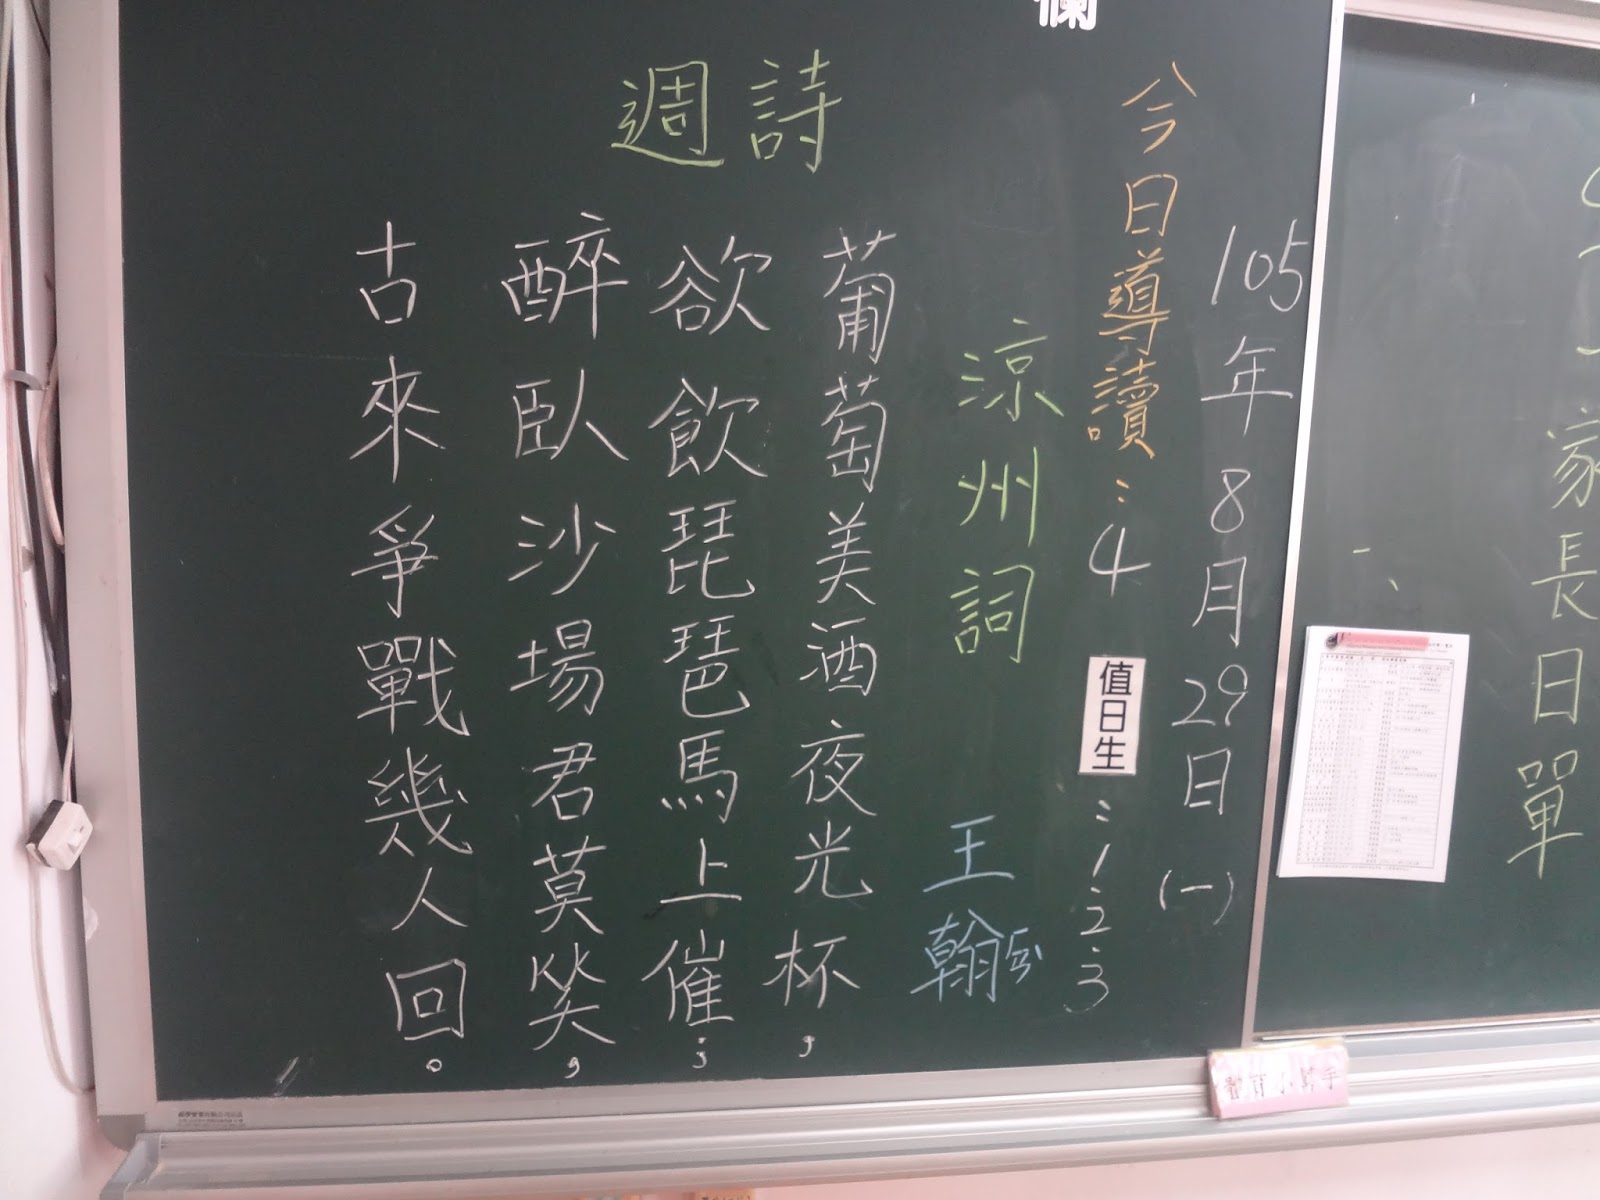 家長日單
一、
105年8月29日(一)
今日導讀：4
值日生：1.2.3
週詩
涼州詞
王翰ㄏㄢˋ
葡萄美酒夜光杯，
欲飲琵琶馬上催；
醉臥沙場君莫笑，
古來爭戰幾人回。
體育小幫手